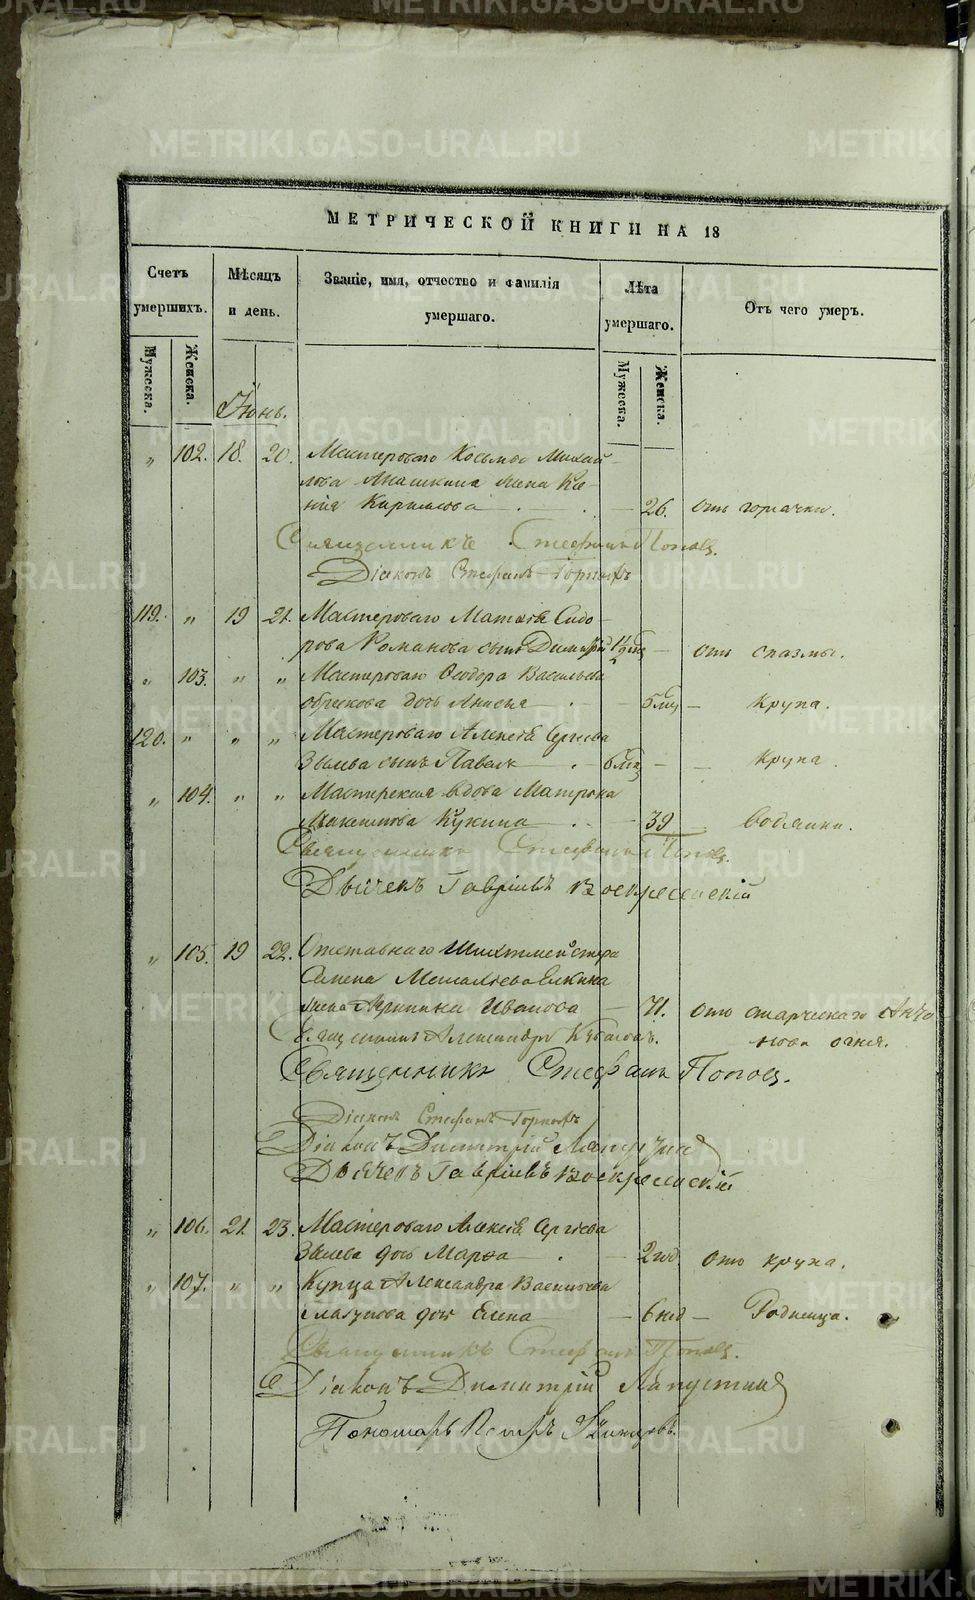 МЕТРИЧЕСКОЙ КНИГИ НА 18
Счетъ умершихъ.
Мѣсяцъ и день.
Званіе, имя, отчество и фамилія умершаго.
Лѣта умершаго.
Отъ чего умеръ.
Мужеска.
Женска.
Мужеска.
Женска.
Іюнь.
„ 102. 18. 20. Мастероваго Косьмы Михай-
лова жена
Кирилова 26. отъ горячки.
Священникъ Стефанъ Поповъ.
Діаконъ Стефанъ
119. „ 19 21. Мастероваго Матвѣя Сидо-
рова Романова сынъ Димитрій отъ спазмы.
„ 103. „ „ Мастероваго Ѳеодора Васильева
дочь Анисья 5 мѣ — крупа.
120. „ „ „ Мастероваго Алексѣя Сергѣева
Зыева сынъ Павелъ 6 мѣ — крупа.
„ 104. „ „ Мастерская вдова Матрона
Кукина 39 водянки.
Священникъ Стефанъ Поповъ.
Дьячекъ Гавріилъ Воскресенскій
„ 105. 19 22. Отставнаго Шихтмейстера
Семена Елкина
жена Иванова 71. отъ старческаго Анто
нова огня.
Священникъ Александръ
Священникъ Стефанъ Поповъ.
Діаконъ Стефанъ
Діаконъ Димитрій
Дьячекъ Гавріилъ Воскресенскій
„ 106. 21. 23. Мастероваго Алексѣя Сергѣева
Зыева дочь Марѳа 2 нед. отъ крупа.
„ 107. „ „ Купца Александра Васильева
дочь Елена 6 нед — Родимца.
Священникъ Стефанъ Поповъ.
Діаконъ Димитрій Лапустинъ
Пономарь Петръ
METRIKI.GASO-URAL.RU